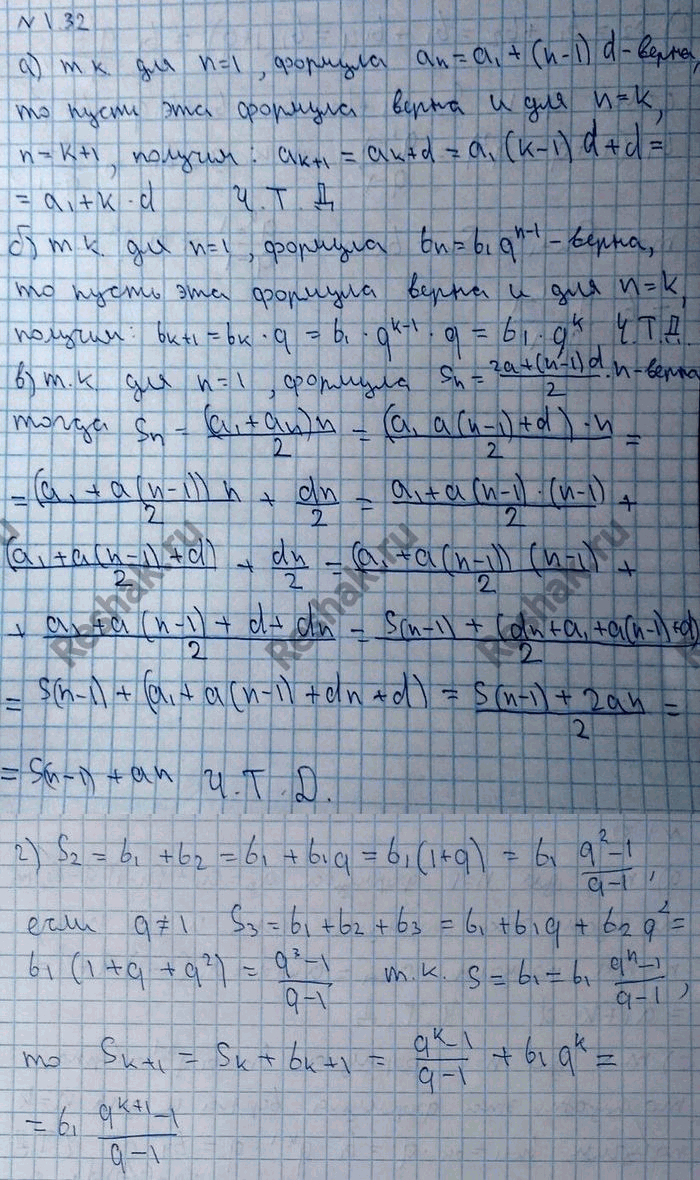 N 1.32
а) т к для n=1, формула aₙ=a₁+(n-1) d-верна,
то пусть эта формула верна и для n=k,
n=k+1, получим: aₖ₊₁=aₖ+d=a₁(k-1)d+d=
=a₁+k·d Ч.Т.Д
б) т к. для n=1, формула bₙ=b₁qⁿ⁻¹-верна,
то пусть эта формула верна и для n=k,
получим: bₖ₊₁=bₖ·q=b₁·qᵏ⁻¹·q=b₁·qᵏ Ч.Т.Д.
в) т.к. для n=1, формула Sₙ=(2a+(n-1)d)/2·n-верна
тогда Sₙ=(a₁+aₙ)n/2=(a₁ a(n-1)+d)·n/2=
=(a₁+a(n-1))n/2+dn/2=a₁+a(n-1)·(n-1)/2+
(a₁+a(n-1)+d)/2+dn/2=(a₁+a(n-1))(n-1)/2+
+a₁+a(n-1)+d+dn/2=S(n-1)+(dn+a₁+a(n-1)+d)/2
=S(n-1)+(a₁+a(n-1)+dn+d)=S(n-1)+2an/2=
=S(n-1)+an Ч.Т.Д.
г) S₂=b₁+b₂=b₁+b₁q=b₁(1+q)=b₁ (q²-1)/(q-1),
если q≠1 S₃=b₁+b₂+b₃=b₁+b₁q+b₂q²=
b₁(1+q+q²)=(q³-1)/(q-1) т.к. S=b₁=b₁ (qⁿ-1)/(q-1),
то Sₖ₊₁=Sₖ+bₖ₊₁=(qᵏ-1)/(q-1)+b₁qᵏ=
=b₁ (qᵏ⁺¹-1)/(q-1)
Reshak.ru
Reshak.ru
Reshak.ru